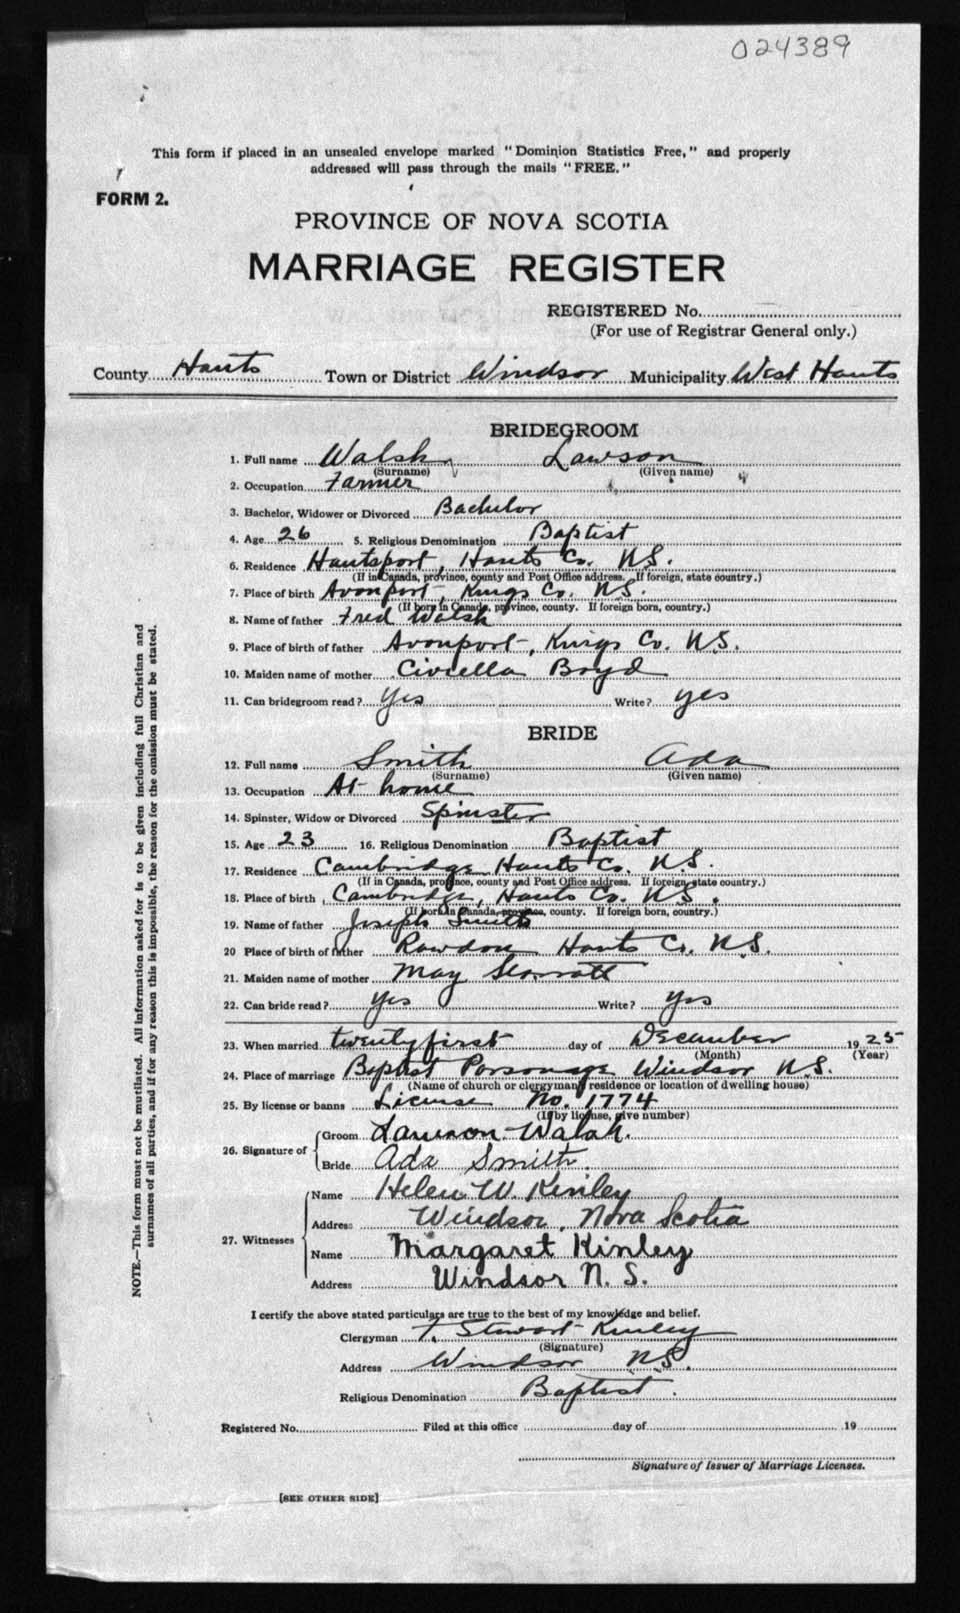 024389
This form if placed in an unsealed envelope marked "Dominion Statistics Free," and properly
addressed will pass through the mails "FREE."
FORM 2.
PROVINCE OF NOVA SCOTIA
MARRIAGE REGISTER
REGISTERED No.
(For use of Registrar General only.)
County Hants Town or District Windsor Municipality West Hants
BRIDEGROOM
1. Full name Walsh Lawson
(Surname) (Given name)
2. Occupation Farmer
3. Bachelor, Widower or Divorced Bachelor
4. Age 26 5. Religious Denomination Baptist
6. Residence Hantsport, Hants Co. N.S.
(If in Canada, province, county and Post Office address. If foreign, state country.)
7. Place of birth Avonport, Kings Co. N.S.
(If born in Canada, province, county. If foreign born, country.)
8. Name of father Fred Walsh
9. Place of birth of father Avonport, Kings Co. N.S.
10. Maiden name of mother Boyd
11. Can bridegroom read? Yes Write? yes
BRIDE
12. Full name Smith Ada
(Surname) (Given name)
13. Occupation At home
14. Spinster, Widow or Divorced Spinster
15. Age 23 16. Religious Denomination Baptist
17. Residence Cambridge Hants Co. N.S.
(If in Canada, province, county and Post Office address. If foreign, state country.)
18. Place of birth Cambridge, Hants Co. N.S.
(If born in Canada, province, county. If foreign born, country.)
19. Name of father Joseph Smith
20 Place of birth of father Rawdon Hants Co. N.S.
21. Maiden name of mother May
22. Can bride read? yes Write? yes
23. When married twenty first day of December 1925
(Month) (Year)
24. Place of marriage Baptist Parsonage Windsor N.S.
(Name of church or clergyman's residence or location of dwelling house)
25. By license or banns License No. 1774
(If by license, give number)
26. Signature of
Groom Lawson Walsh.
Bride Ada Smith.
27. Witnesses
Name Helen W. Kinley
Address Windsor, Nova Scotia
Name Margaret Kinley
Address Windsor N. S.
I certify the above stated particulars are true to the best of my knowledge and belief.
Clergyman F. Stewart Kinley
(Signature)
Address Windsor N.S.
Religious Denomination Baptist.
Registered No. Filed at this office day of 19
Signature of Issuer of Marriage Licenses.
[SEE OTHER SIDE]
NOTE.—This form must not be mutilated. All information asked for is to be given including full Christian and
surnames of all parties, and if for any reason this is impossible, the reason for the omission must be stated.